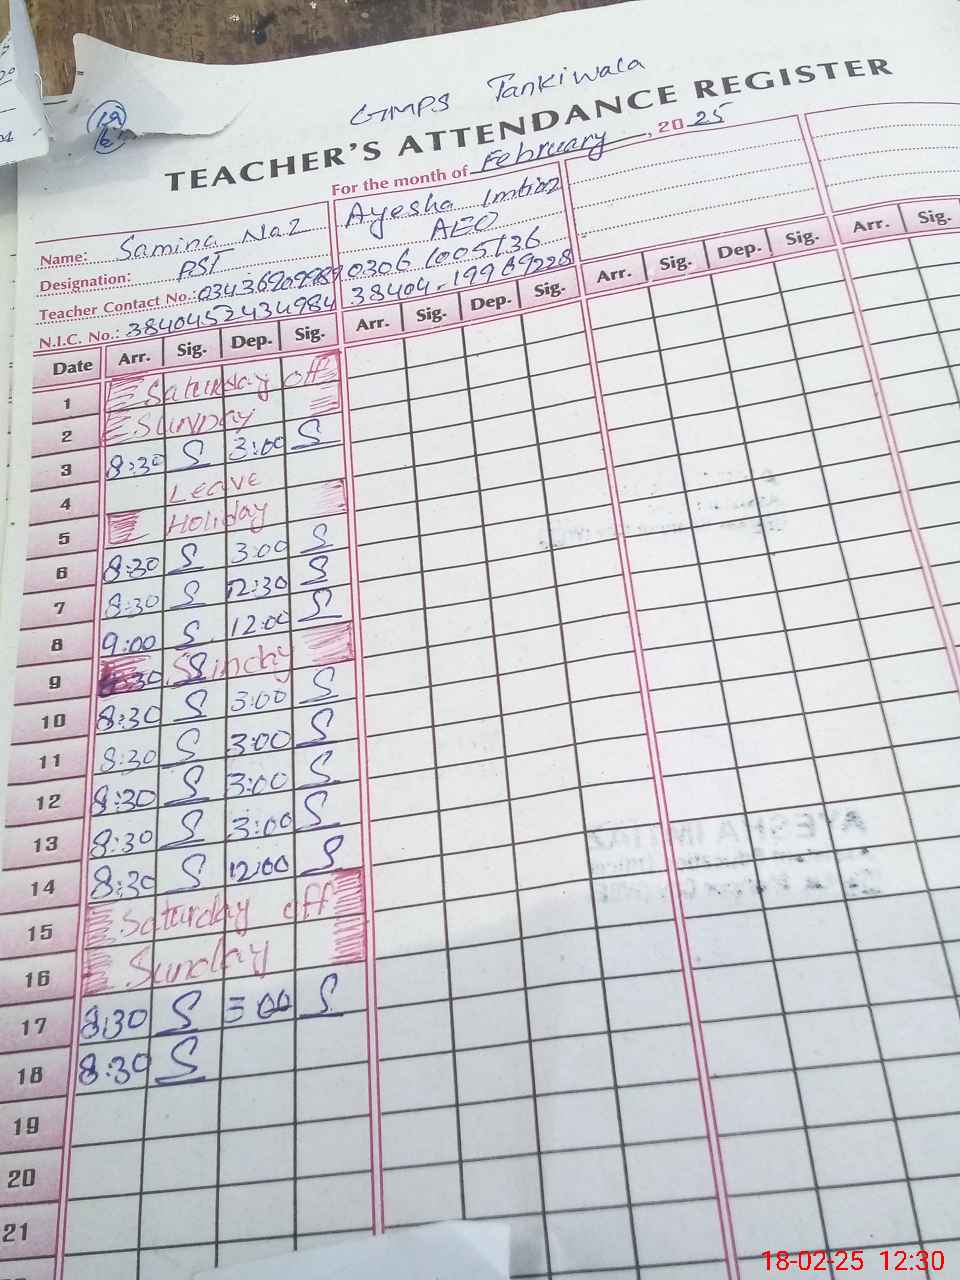 GMPS Tankiwala
TEACHER'S ATTENDANCE REGISTER
For the month of February, 2025
Name: Samina Naz Ayesha Imtiaz
Designation: PST AEO
Teacher Contact No.: 0306 1005136
N.I.C. No.: 3840452434984 38404-19969228
Date Arr. Sig. Dep. Sig. Arr. Sig. Dep. Sig. Arr. Sig. Dep. Sig. Arr. Sig.
1 Saturday off
2 Sunday
3 8:30 S 3:00 S
4 Leave
5 Holiday
6 8:30 S 3:00 S
7 8:30 S 12:30 S
8 9:00 S 12:00 S
9
10 8:30 S 3:00 S
11 8:30 S 3:00 S
12 8:30 S 3:00 S
13 8:30 S 3:00 S
14 8:30 S 12:00 S
15 Saturday off
16 Sunday
17 8:30 S 3:00 S
18 8:30 S
19
20
21
18-02-25 12:30